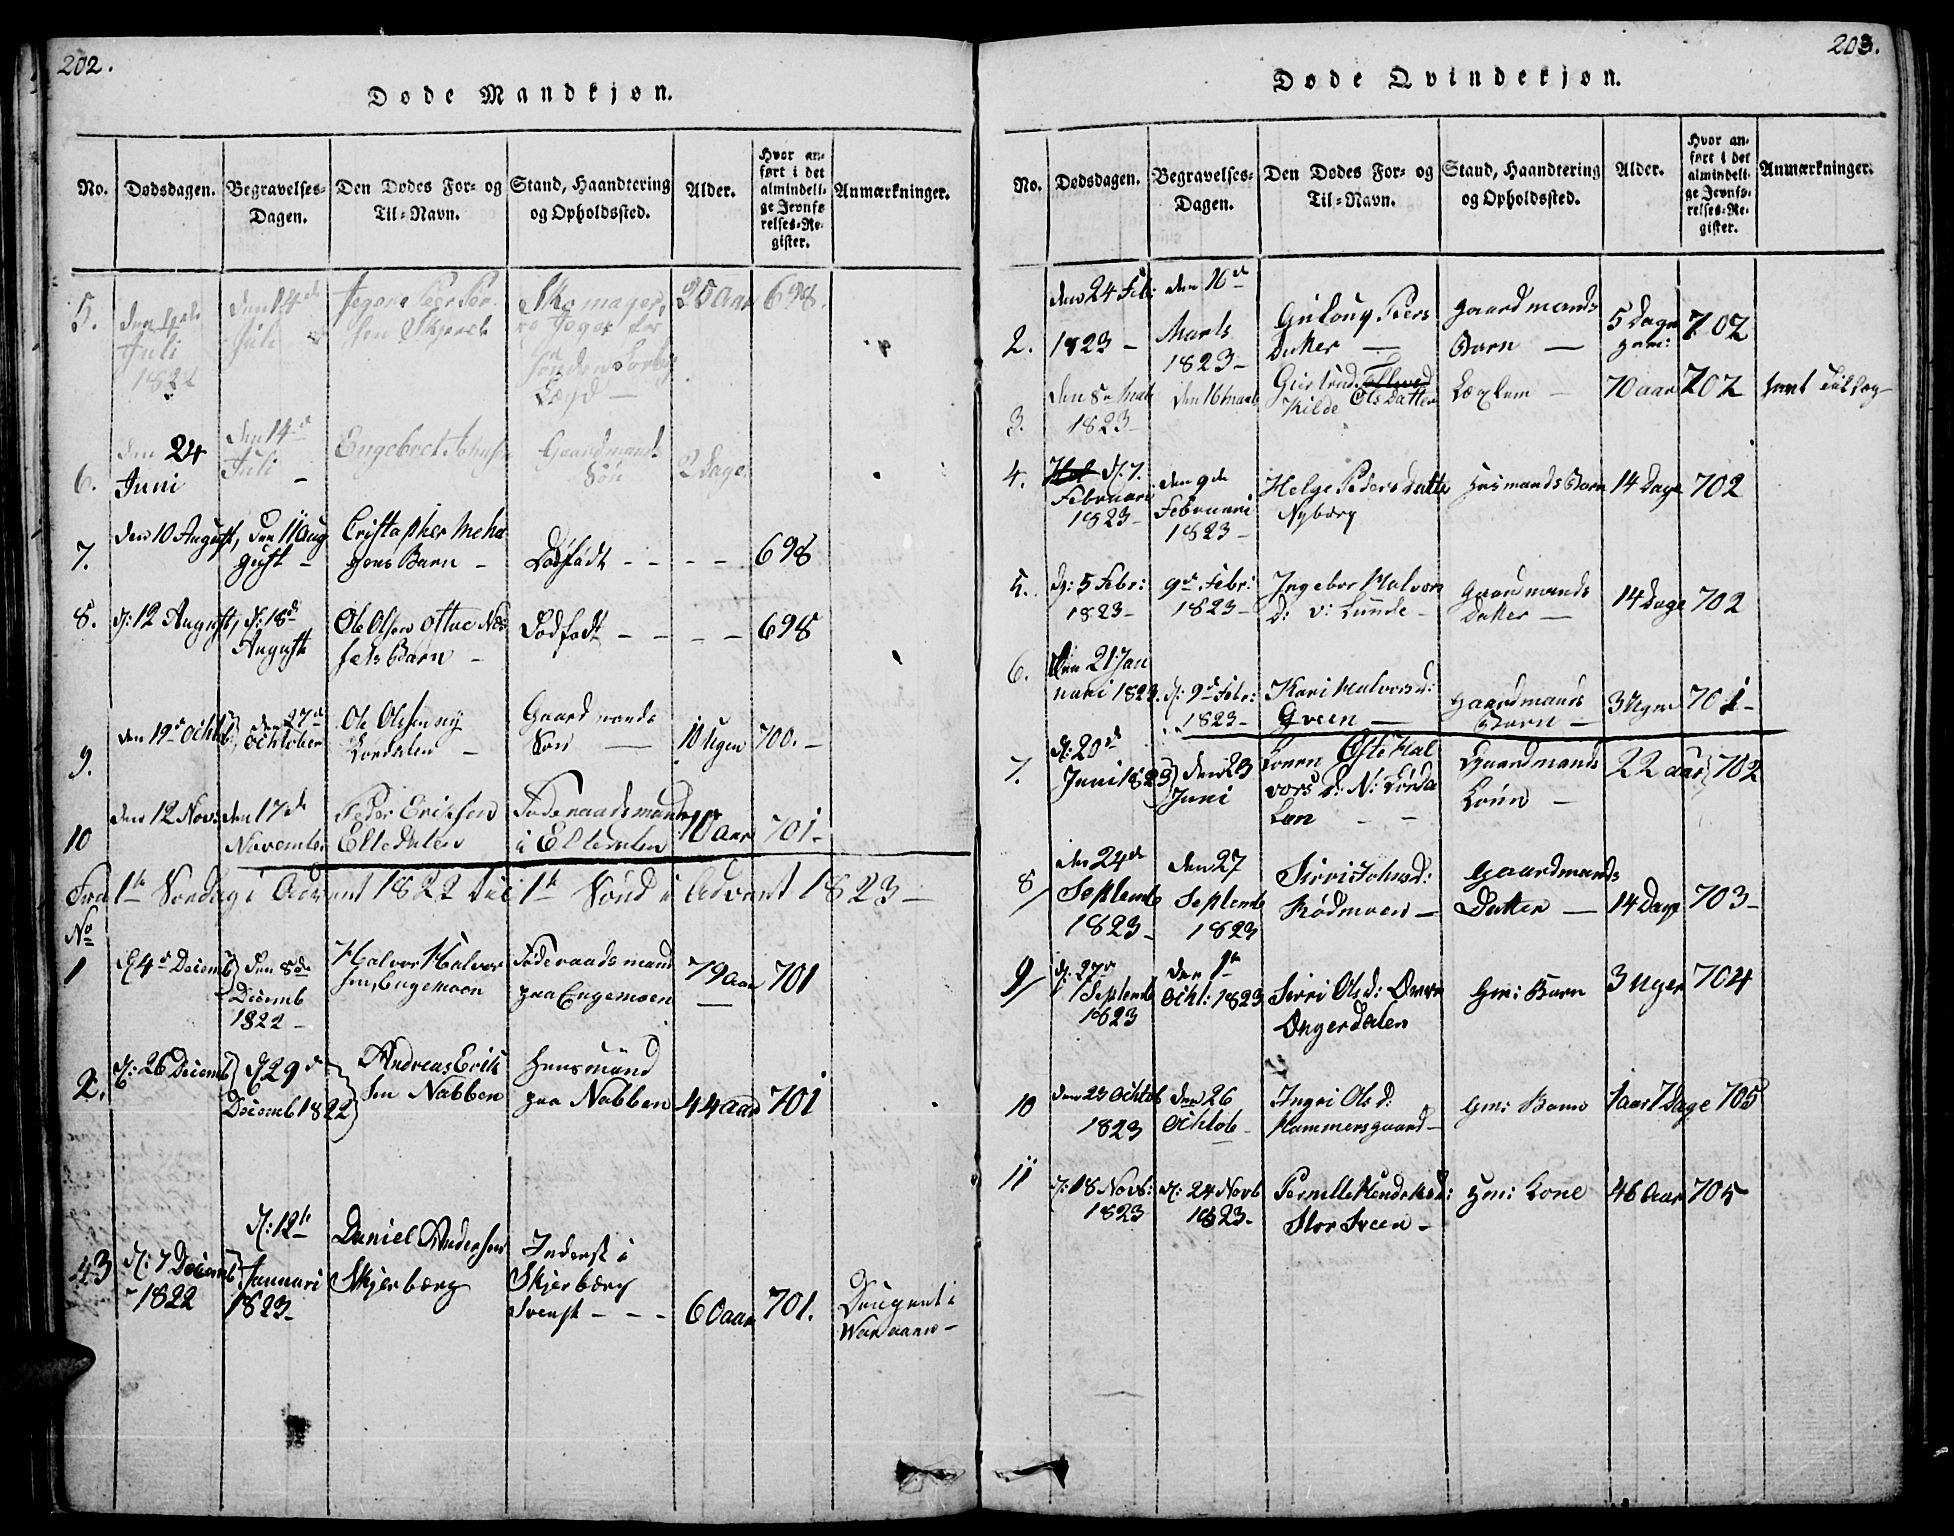 202.
Døde Mandkjøn.
No.
Dødsdagen.
Begravelses-
Dagen.
Den Dødes For- og
Til-Navn.
Stand, Haandtering
og Opholdssted.
Alder.
Hvor an-
ført i det
almindeli-
ge Jevnfø-
relses-Re-
gister.
Anmærkninger.
5.
Juli
1822
den 14de
Juli
25 Aar
698.
6.
den 24
Juni
den 14de
Juli
Engebret Johnsen
Gaardmands
Søn
2 Dage
7.
den 10 August,
den 11 Aug
gust
Barn
Dødfødt
698
8.
d: 12 August,
d: 18de
August
Ole Olsen
Barn
Dødfødt
698
9.
den 19de Octob
den 27de
Octtober
Ole Olsen Ny
Lordalen
Gaardmands
Søn
10 Ugen
700.
10
den 12 Nov:
den 17de
November
Peder Eriksen
Eltdalen
Føderaadsmand
i Eltdalen
Aar
701
Fra 1te Søndag i Advent 1822 til 1te Sønd i Advent 1823
No
1
d 4de Decemb
den 8de
Decemb
1822
Halvor Halvor
sen Engemoen
Føderaadsmand
paa Engemoen
79 Aar
701
2.
d: 26 Decemb
d 29de
Decemb 1822
Andreas Erik
sen Nabben
Huusmand
paa Nabben
44 Aar
701
3
d: 7 Decemb
1822
d: 12te
Januari
1823
Daniel Andersen
Skjerbærg
Inderst i
Skjerbærg
Svensk
60 aar
701.
203.
Døde Qvindekjøn.
No.
Dødsdagen.
Begravelses-
Dagen.
Den Dødes For- og
Til-Navn.
Stand, Haandtering
og Opholdssted.
Alder.
Hvor an-
ført i det
almindeli-
ge Jevnfø-
relses-Re-
gister.
Anmærkninger.
2.
den 24 Feb:
1823
den 16de
Marts
1823
Guloug Peers
Datter
Gaardmands
Barn
5 Dage
702
3.
1823
den 16 Marts
Kilde Olsdatter
Læglem
70 aar
702
4.
d. 7.
Februari
1823
den 9de
Februari
1823
Helge Pedersdatter
Nyberg
Husmands Barn
14 Dage
702
5.
d: 5 Febr:
1823
9de Febr:
1823
Ingebor Halvors
D: v: Lunde
Gaardmands
Datter
14 Dage
702
6.
Den 21 Jan
nuari 1823.
d: 9de Febr:
1823
Kari Halvorsd:
Gveen
Gaardmands
Barn
3 Ugen
701
7.
d: 20de
Juni 1823
den 23
Juni
Konen Øste Hal
vors D: N: Lørda
Len
Gaardmands
Konn
22 aar
702
8
den 24de
Septemb
1823
den 27
Septemb
1823
Sirri Johnsd:
Rødmoen
Gaardmands
Datter
14 Dage
703
9
d: 27de
Septemb
1823
den 1te
Octt: 1823
Sirri Olsd: Øvren
Ongerdalen
Gm: Barn
3 Uger
704
10
den 23 Octtob
1823
den 26
Octtob
Ingri Olsd:
Hammersgaard
Gm: Barn
1 aar 7 Dage
705
11
d: 18 Novb:
1823
d: 24 Novb
1823
Pernille Hendriksd:
Stor Sveen
Gm: Kone
46 Aar
705